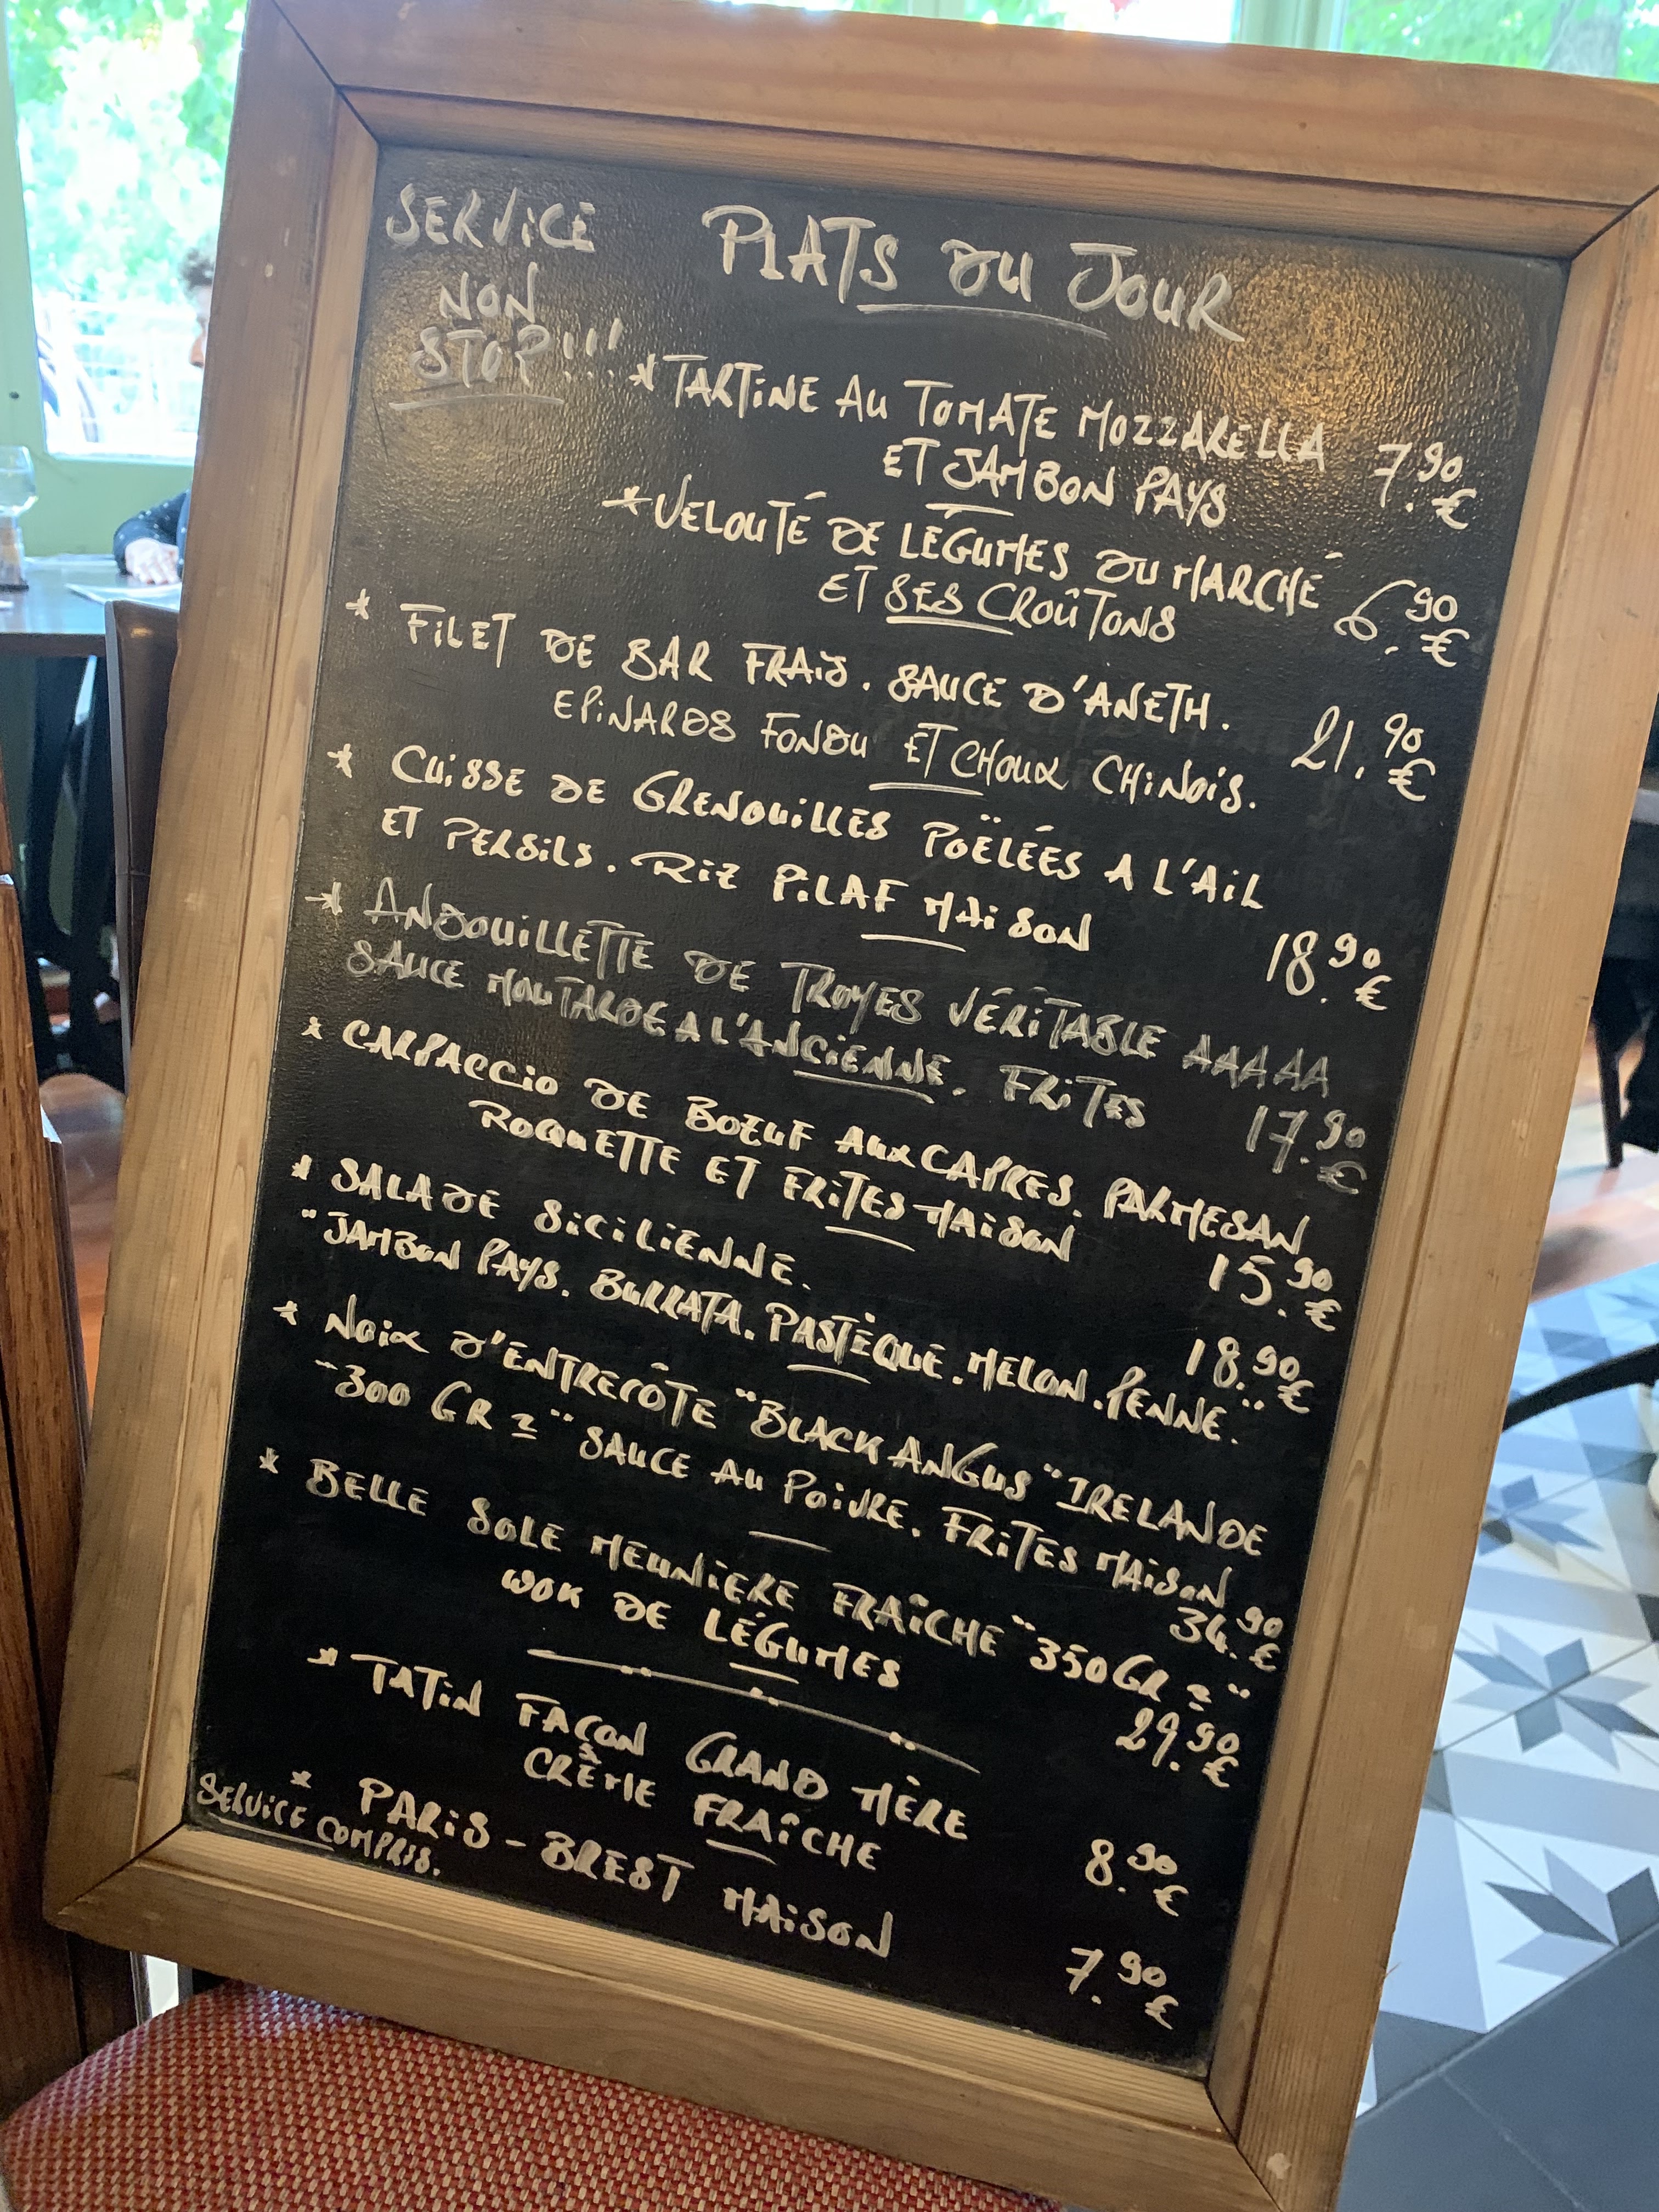 SERVICE
NON
STOP!!!
PLATS DU JOUR
* TARTINE AU TOMATE MOZZARELLA
ET JAMBON PAYS 7.90 €
* VELOUTÉ DE LÉGUMES DU MARCHÉ
ET SES CROÛTONS 6.90 €
* FILET DE BAR FRAIS. SAUCE D'ANETH.
EPINARDS FONDU ET CHOUX CHINOIS. 21.90 €
* CUISSE DE GRENOUILLES POËLÉES A L'AIL
ET PERSILS. RIZ PILAF MAISON 18.90 €
* ANDOUILLETTE DE TROYES VÉRITABLE AAAAA
SAUCE MOUTARDE A L'ANCIENNE. FRITES 17.90 €
* CARPACCIO DE BOEUF AUX CAPRES. PARMESAN
ROQUETTE ET FRITES MAISON 15.90 €
* SALADE SICILIENNE.
"JAMBON PAYS. BURRATA. PASTÈQUE. MELON. PENNE." 18.90 €
* NOIX D'ENTRECÔTE "BLACK ANGUS" IRELANDE
"300 GR" SAUCE AU POIVRE. FRITES MAISON 34.90 €
* BELLE SOLE MEUNIÈRE FRAÎCHE "350 GR"
WOK DE LÉGUMES 29.90 €
* TATIN FAÇON GRAND MÈRE
CRÈME FRAÎCHE 8.90 €
* PARIS-BREST MAISON 7.90 €
SERVICE COMPRIS.